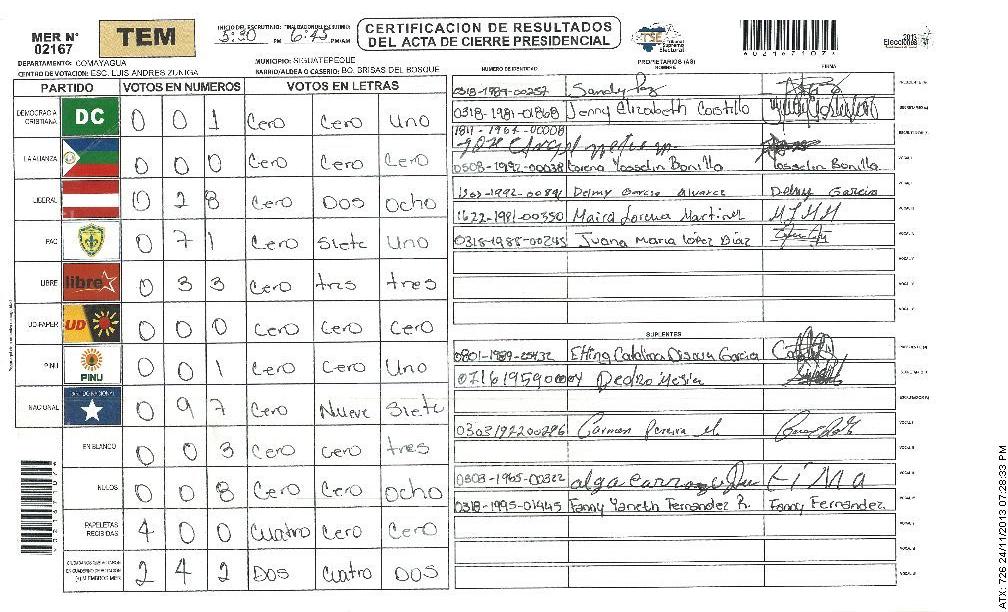 MER N°
02167
TEM
INICIO DEL ESCRUTINIO: 5:30 PM
FINALIZACION DEL ESCRUTINIO: 6:45 PM/AM
CERTIFICACION DE RESULTADOS
DEL ACTA DE CIERRE PRESIDENCIAL
TSE
Tribunal
Supremo
Electoral
0216710?
Elecciones 2013
DEPARTAMENTO: COMAYAGUA
MUNICIPIO: SIGUATEPEQUE
CENTRO DE VOTACION: ESC. LUIS ANDRES ZUNIGA
BARRIO/ALDEA O CASERIO: BO. BRISAS DEL BOSQUE
PARTIDO VOTOS EN NUMEROS VOTOS EN LETRAS
DEMOCRACIA CRISTIANA DC 0 0 1 Cero Cero Uno
LA ALIANZA 0 0 0 Cero Cero Cero
LIBERAL 0 2 8 Cero Dos Ocho
PAC 0 7 1 Cero Siete Uno
LIBRE libre 0 3 3 Cero tres tres
UD-FAPER UD 0 0 0 Cero Cero Cero
PINU PINU 0 0 1 Cero Cero Uno
NACIONAL 0 9 7 Cero Nueve Siete
EN BLANCO 0 0 3 Cero Cero tres
NULOS 0 0 8 Cero Cero Ocho
PAPELETAS RECIBIDAS 4 0 0 Cuatro Cero Cero
CIUDADANOS QUE VOTARON EN CUADERNO DE VOTACION (+) MIEMBROS MER 2 4 2 Dos Cuatro Dos
NUMERO DE IDENTIDAD
PROPIETARIOS (AS)
NOMBRE
FIRMA
0318-1989-00257 Sandy Paz
0318-1981-01868 Jenny Elizabeth Castillo
1811-1967-00008
0508-1992-00038 Lorena Yosselin Bonilla Yosselin Bonilla
1992-00891 Delmy Garcia Alvarez Delmy Garcia
1622-1981-00350 Maira Lorena Martinez
0318-1988-00245 Juana Maria López Diaz
SUPLENTES
0801-1989-25432 Catalina Garcia
Pedro Mejia
03031972200296 Carmen Pereira M.
0303-1965-00322
0318-1995-01445 Fanny Yaneth Fernandez R. Fanny Fernandez
ATX: 726 24/11/2013 07:28:33 PM